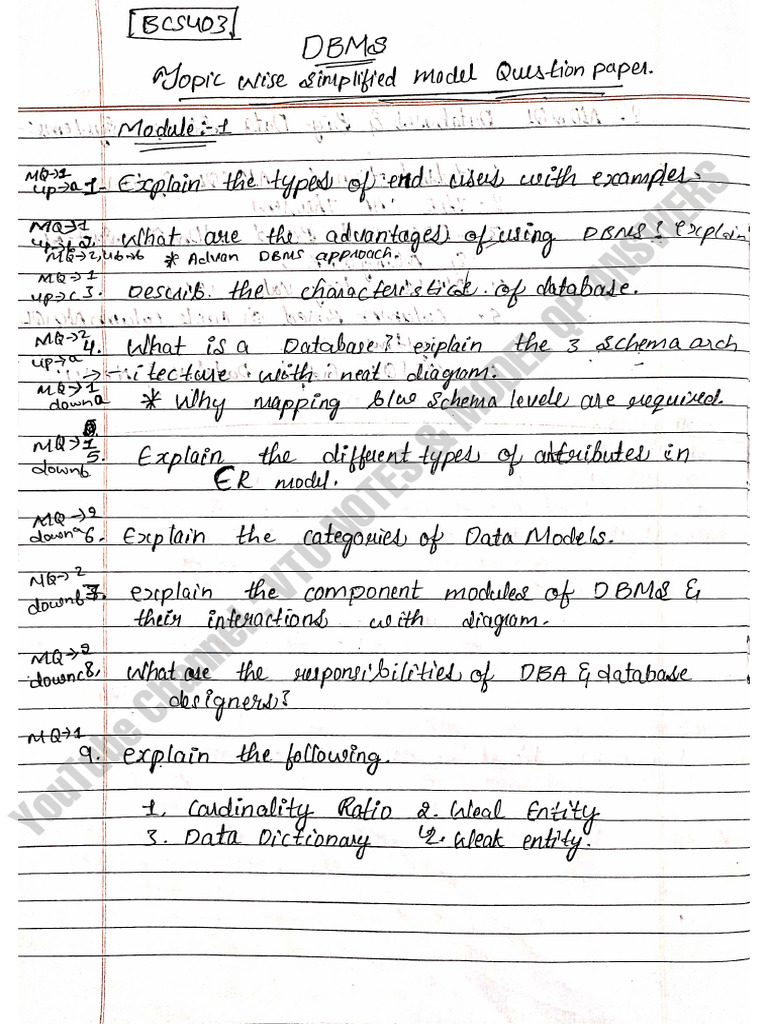 BCS403
DBMS
Topic wise simplified model Question paper.
Module:-1
MQ→1
up→a 1- Explain the types of end users with examples.
MQ→1
up→b 2. What are the advantages of using DBMS? Explain
MQ→2, ub→b * Advan DBMS approach.
MQ→1
up→c 3. Describ the characteristics of database.
MQ→2
up→a 4. What is a Database? explain the 3 schema arch
→ -itecture with neat diagram.
MQ→1
down a * Why mapping b/w schema levels are required.
MQ→1
down b 5. Explain the different types of attributes in
ER model.
MQ→2
down a 6. Explain the categories of Data Models.
MQ→2
down b 7. explain the component modules of DBMS &
their interactions with diagram.
MQ→2
down c 8. What are the responsibilities of DBA & database
designers?
MQ→1
9. explain the following.
1. Cardinality Ratio 2. Weal Entity
3. Data Dictionary 2. Weak entity.
YouTube Channel: VTU NOTES & MODEL QP ANSWERS